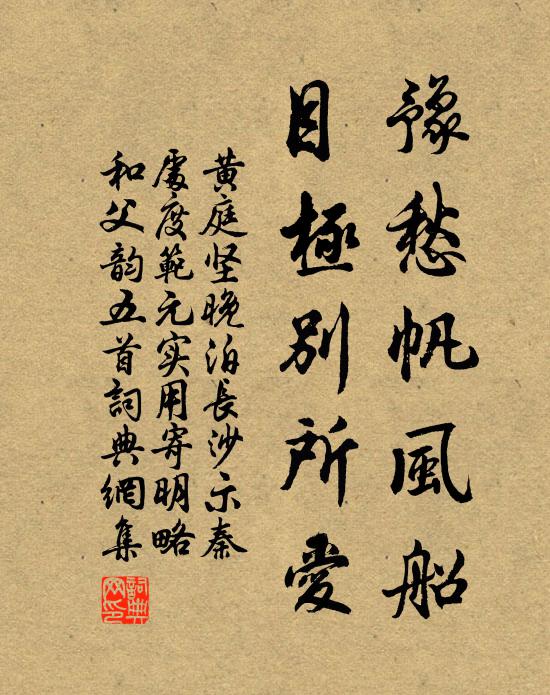 豫愁帆風船
目極別所愛
黄庭坚晚泊長沙示秦
處度範元实用寄明略
和父韵五首詞典網集
詞典网印